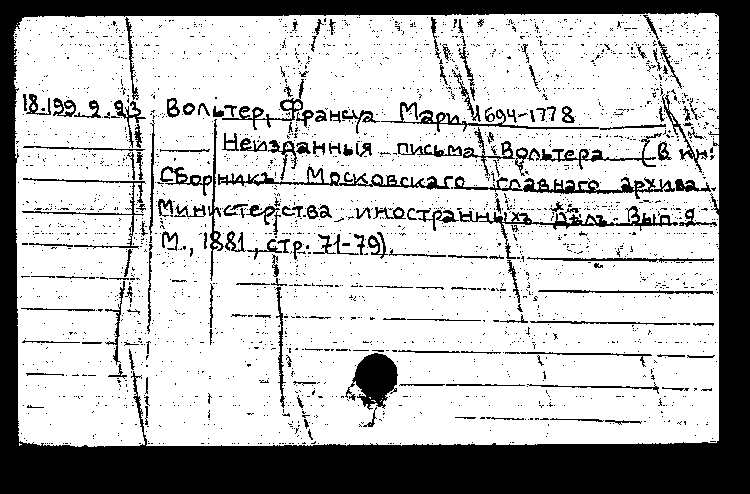 18.199.2.23 Вольтер, Франсуа Мари, 1694-1778
Неизданныя письма Вольтера (В кн:
Сборникъ Московскаго главнаго архива
Министерства иностранныхъ дѣлъ. Вып. 2
М., 1881, стр. 71-79).